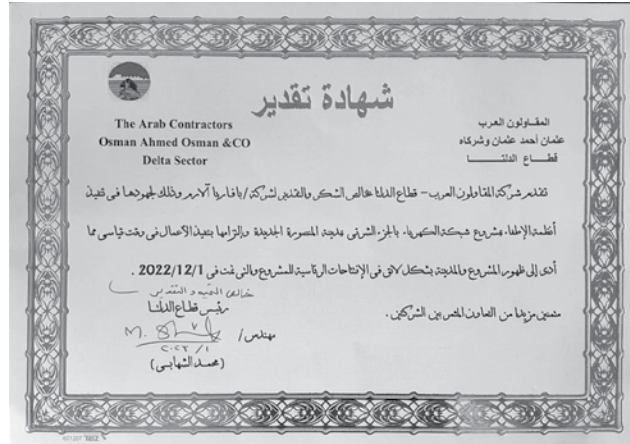 شهادة تقدير
The Arab Contractors
Osman Ahmed Osman &CO
Delta Sector
المقاولون العرب
عثمان أحمد عثمان وشركاه
قطـــاع الدلتـــا
تتقدم شركة المقاولون العرب – قطاع الدلتا بخالص الشكر والتقدير لشركة / بافاريا آلارم وذلك لجهودها فى تنفيذ
أنظمة الإطفاء بمشروع شبكة الكهرباء بالجزء الشرقى بمدينة المنصورة الجديدة وإلتزامها بتنفيذ الأعمال فى وقت قياسى مما
أدى إلى ظهور المشروع والمدينة بشكل لائق فى الإفتتاحات الرئاسية للمشروع والتى تمت فى 2022/12/1 .
متمنين مزيدا من التعاون المثمر بين الشركتين .
خالص التحية و التقدير
رئيس قطاع الدلتا
مهندس /
(محمد الشهابى)